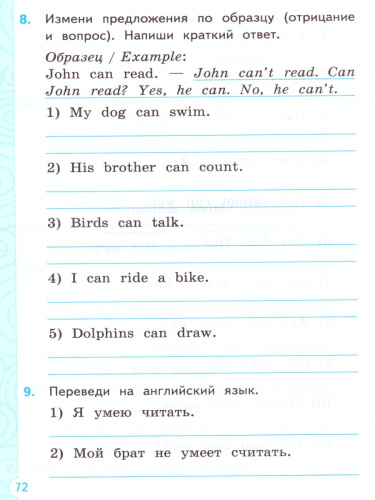 8. Измени предложения по образцу (отрицание
и вопрос). Напиши краткий ответ.
Образец / Example:
John can read. — John can't read. Can
John read? Yes, he can. No, he can't.
1) My dog can swim.
2) His brother can count.
3) Birds can talk.
4) I can ride a bike.
5) Dolphins can draw.
9. Переведи на английский язык.
1) Я умею читать.
2) Мой брат не умеет считать.
72